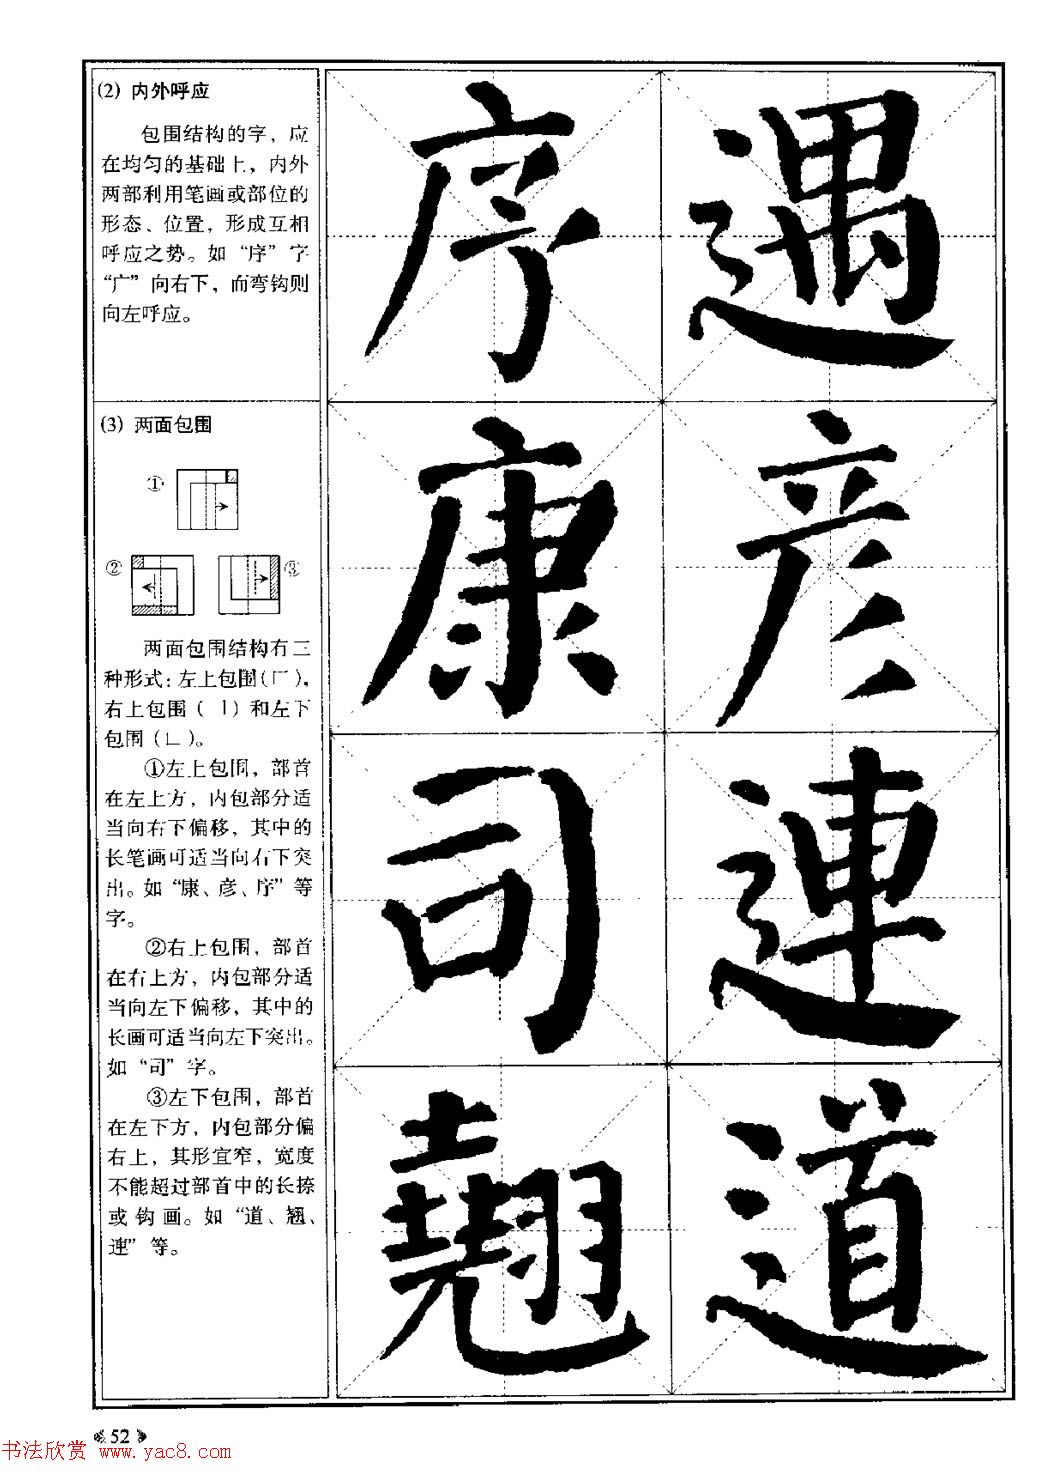 (2) 内外呼应
包围结构的字，应
在均匀的基础上，内外
两部利用笔画或部位的
形态、位置，形成互相
呼应之势。如“序”字
“广”向右下，而弯钩则
向左呼应。
(3) 两面包围
①
② ③
两面包围结构有三
种形式：左上包围(厂)，
右上包围（㇆）和左下
包围（∟）。
①左上包围，部首
在左上方，内包部分适
当向右下偏移，其中的
长笔画可适当向右下突
出。如“康、彦、序”等
字。
②右上包围，部首
在右上方，内包部分适
当向左下偏移，其中的
长画可适当向左下突出。
如“司”字。
③左下包围，部首
在左下方，内包部分偏
右上，其形宜窄，宽度
不能超过部首中的长捺
或钩画。如“道、翘、
連”等。
序 遇
康 彦
司 連
翹 道
52
书法欣赏 www.yac8.com